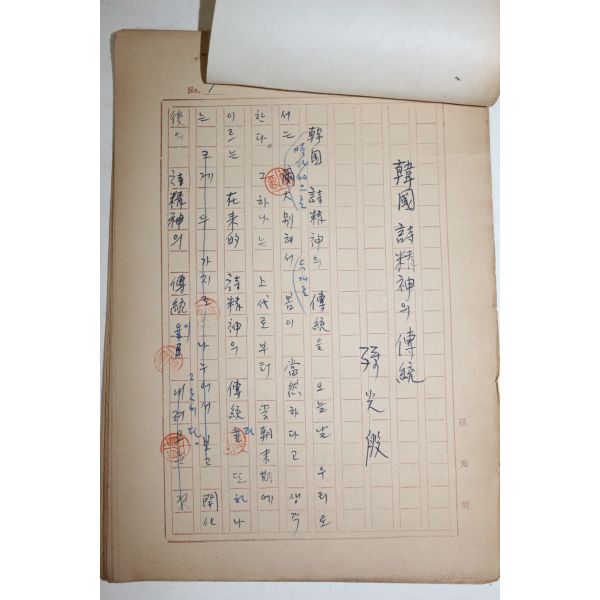 No. 1
韓國 詩精神의 傳統
孫光殷
韓國 詩精神의 傳統을 오늘날 우리로
서는 大別해서 두개로 봄이 當然하다고 생각
한다. 그 하나는 上代로부터 李朝末期에
이르는 在來的 詩精神의 傳統과 또 하나
는 크게 두 가지로 나누어서 보고 開化
後의 詩精神의 傳統이 그것이다.
孫光殷